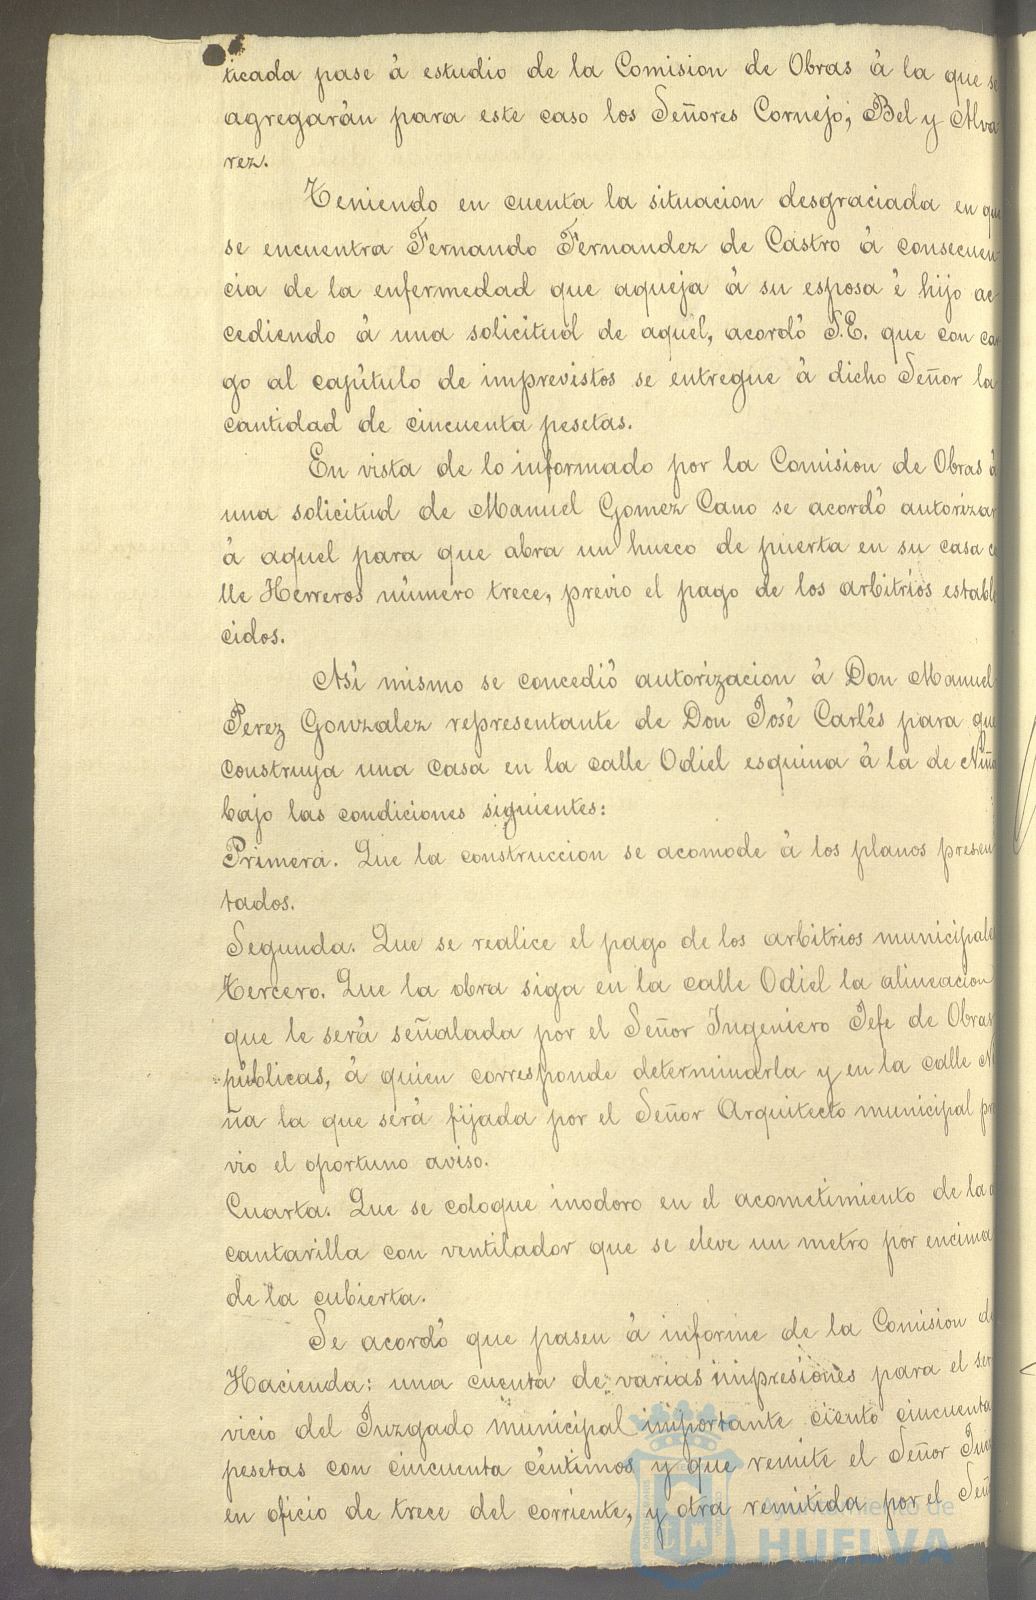 ticada pase á estudio de la Comision de Obras á la que se
agregarán para este caso los Señores Cornejo, Bel y Alva
rez.
Teniendo en cuenta la situacion desgraciada en que
se encuentra Fernando Fernandez de Castro á consecuen
cia de la enfermedad que aqueja á su esposa é hijo ac
cediendo á una solicitud de aquel, acordó S.E. que con car
go al capítulo de imprevistos se entregue á dicho Señor la
cantidad de cincuenta pesetas.
En vista de lo informado por la Comision de Obras á
una solicitud de Manuel Gomez Cano se acordó autorizar
á aquel para que abra un hueco de puerta en su casa ca
lle Herreros número trece, previo el pago de los arbitrios estable
cidos.
Así mismo se concedió autorizacion á Don Manuel
Perez Gonzalez representante de Don José Carlés para que
construya una casa en la calle Odiel esquina á la de Niña
bajo las condiciones siguientes:
Primera. Que la construccion se acomode á los planos presen
tados.
Segunda. Que se realice el pago de los arbitrios municipales
Tercero. Que la obra siga en la calle Odiel la alineacion
que le será señalada por el Señor Ingeniero Jefe de Obras
públicas, á quien corresponde determinarla y en la calle Ni
ña la que será fijada por el Señor Arquitecto municipal pre
vio el oportuno aviso.
Cuarta. Que se coloque inodoro en el acometimiento de la a
cantarilla con ventilador que se eleve un metro por encima
de la cubierta.
Se acordó que pasen á informe de la Comision de
Hacienda: una cuenta de varias impresiones para el ser
vicio del Juzgado municipal importante ciento cincuenta
pesetas con cincuenta céntimos y que remite el Señor Juez
en oficio de trece del corriente, y otra remitida por el Señ
Ayuntamiento de
HUELVA